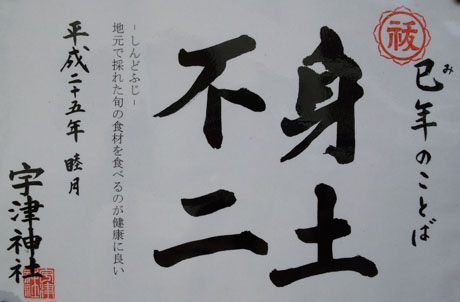 祓
巳年のことば
み
身土
不二
-しんどふじ-
地元で採れた旬の食材を食べるのが健康に良い
平成二十五年 睦月
宇津神社